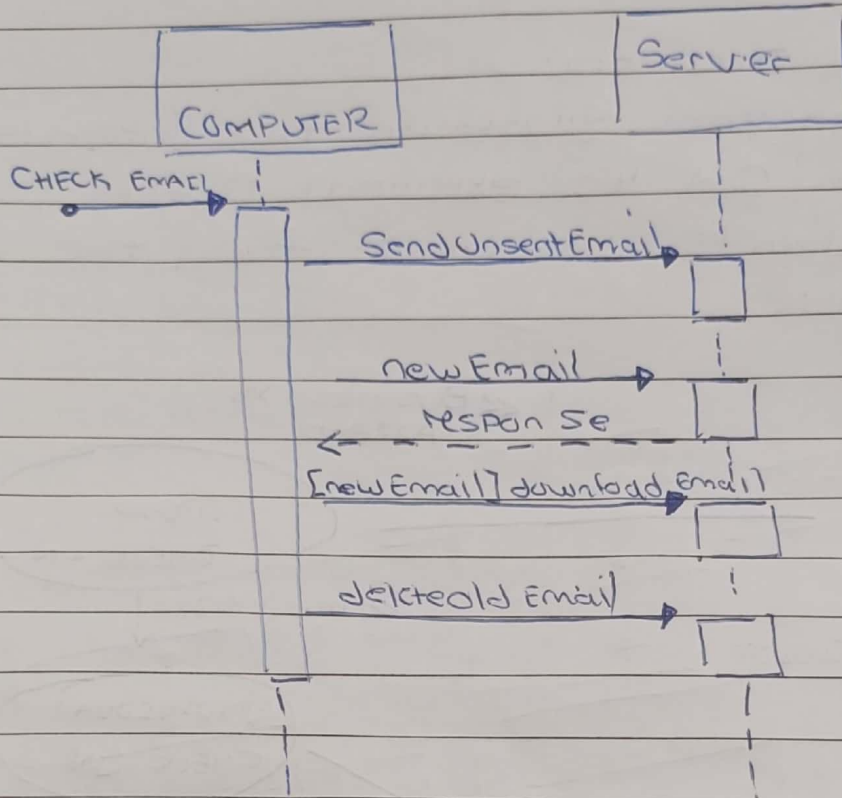 Server
COMPUTER
CHECK EMAIL
SendUnsentEmail
newEmail
response
[newEmail] download Email
deleteold Email